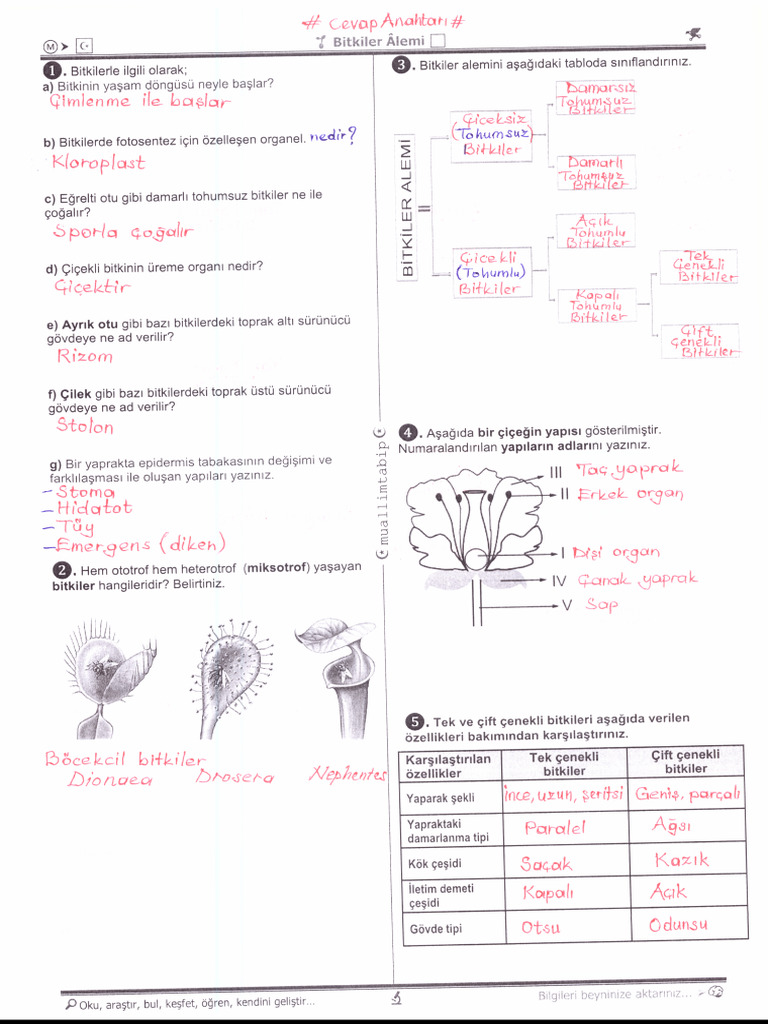 # Cevap Anahtarı #
Bitkiler Âlemi
1. Bitkilerle ilgili olarak;
a) Bitkinin yaşam döngüsü neyle başlar?
Çimlenme ile başlar
b) Bitkilerde fotosentez için özelleşen organel. nedir?
Kloroplast
c) Eğrelti otu gibi damarlı tohumsuz bitkiler ne ile
çoğalır?
Sporla çoğalır
d) Çiçekli bitkinin üreme organı nedir?
Çiçektir
e) Ayrık otu gibi bazı bitkilerdeki toprak altı sürünücü
gövdeye ne ad verilir?
Rizom
f) Çilek gibi bazı bitkilerdeki toprak üstü sürünücü
gövdeye ne ad verilir?
Stolon
g) Bir yaprakta epidermis tabakasının değişimi ve
farklılaşması ile oluşan yapıları yazınız.
- Stoma
- Hidatot
- Tüy
- Emergens (diken)
2. Hem ototrof hem heterotrof (miksotrof) yaşayan
bitkiler hangileridir? Belirtiniz.
Böcekcil bitkiler
Dionaea
Drosera
Nephentes
muallimtabip
3. Bitkiler alemini aşağıdaki tabloda sınıflandırınız.
BİTKİLER ALEMİ
Çiçeksiz
(Tohumsuz)
Bitkiler
Damarsız
Tohumsuz
Bitkiler
Damarlı
Tohumsuz
Bitkiler
Çiçekli
(Tohumlu)
Bitkiler
Açık
Tohumlu
Bitkiler
Kapalı
Tohumlu
Bitkiler
Tek
Çenekli
Bitkiler
Çift
Çenekli
Bitkiler
4. Aşağıda bir çiçeğin yapısı gösterilmiştir.
Numaralandırılan yapıların adlarını yazınız.
III Taç yaprak
II Erkek organ
I Dişi organ
IV Çanak yaprak
V Sap
5. Tek ve çift çenekli bitkileri aşağıda verilen
özellikleri bakımından karşılaştırınız.
Karşılaştırılan özellikler Tek çenekli bitkiler Çift çenekli bitkiler
Yaparak şekli İnce, uzun, şeritsi Geniş, parçalı
Yapraktaki damarlanma tipi Paralel Ağsı
Kök çeşidi Saçak Kazık
İletim demeti çeşidi Kapalı Açık
Gövde tipi Otsu Odunsu
Oku, araştır, bul, keşfet, öğren, kendini geliştir...
Bilgileri beyninize aktarınız...